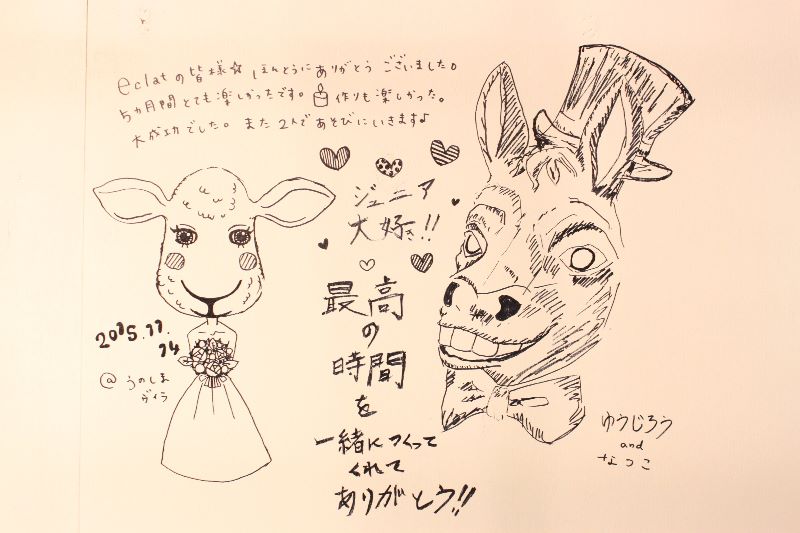 eclatの皆様☆ ほんとうにありがとう ございました。
5ヵ月間とても楽しかったです。 作りも楽しかった。
大成功でした。また2人であそびにいきます♪
ジュニア
大好き!!
最高
の
時間
を
一緒につくって
くれて
ありがとう!!
2015.11.
14
@うのしま
ヴィラ
ゆうじろう
and
なつこ